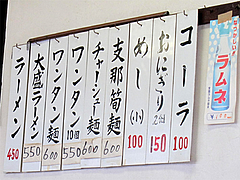 コーラ 100
おにぎり 2個 150
めし (小) 100
支那筍麺 600
チャーシュー麺 600
ワンタン 10個 550
ワンタン麺 600
大盛ラーメン 550
ラーメン 450
ラムネ